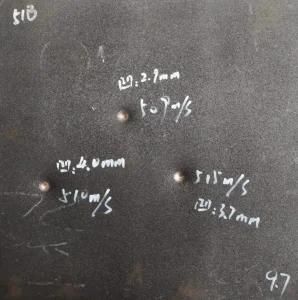 518
凹:2.9mm
509m/s
凹:4.0mm
510m/s
515m/s
凹:3.7mm
9.7